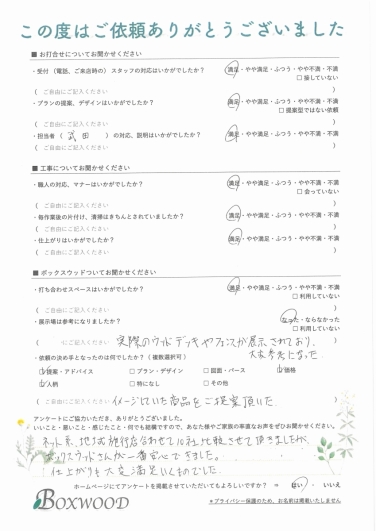 この度はご依頼ありがとうございました
■ お打合せについてお聞かせください
・受付（電話、ご来店時の）スタッフの対応はいかがでしたか？ 満足・やや満足・ふつう・やや不満・不満
□ 接していない
（ ご自由にご記入ください ）
・プランの提案、デザインはいかがでしたか？ 満足・やや満足・ふつう・やや不満・不満
□ 提案型ではない依頼
（ ご自由にご記入ください ）
・担当者（ 武田 ）の対応、説明はいかがでしたか？ 満足・やや満足・ふつう・やや不満・不満
（ ご自由にご記入ください ）
■ 工事についてお聞かせください
・職人の対応、マナーはいかがでしたか？ 満足・やや満足・ふつう・やや不満・不満
□ 会っていない
（ ご自由にご記入ください ）
・毎作業後の片付け、清掃はきちんとされていましたか？ 満足・やや満足・ふつう・やや不満・不満
（ ご自由にご記入ください ）
・仕上がりはいかがでしたか？ 満足・やや満足・ふつう・やや不満・不満
（ ご自由にご記入ください ）
■ ボックスウッドついてお聞かせください
・打ち合わせスペースはいかがでしたか？ 満足・やや満足・ふつう・やや不満・不満
□ 利用していない
（ ご自由にご記入ください ）
・展示場は参考になりましたか？ なった・ならなかった
□ 利用していない
（ にご記入ください 実際のウッドデッキやフェンスが展示されており、
大変参考になった ）
・依頼の決め手となったのは何でしたか？（ 複数選択可 ）
□提案・アドバイス □ プラン・デザイン □ 図面・パース □価格
□人柄 □ 特になし □ その他
（ ご自由にご記入ください イメージしていた商品をご提案頂いた ）
アンケートにご協力いただき、ありがとうございました。
いいこと・悪いこと・感じたこと、何でも結構ですので、皆様やご家族の率直なお声をお聞かせください。
ネット系、地域施行店合わせて10社比較させて頂きましたが、
ボックスウッドさんが一番安心できました。
仕上がりも大変満足いくものでした。
ホームページにてアンケートを掲載させていただいてもよろしいですか？ ⇒ はい ・ いいえ
BOXWOOD
＊プライバシー保護のため、お名前は掲載いたしません